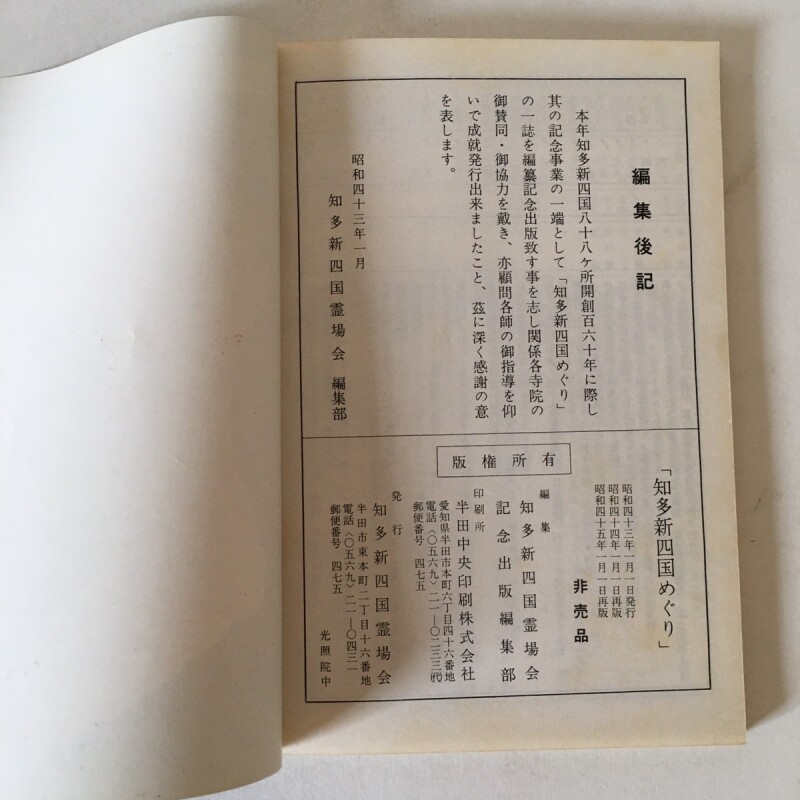 編集後記
本年知多新四国八十八ケ所開創百六十年に際し
其の記念事業の一端として「知多新四国めぐり」
の一誌を編纂記念出版致す事を志し関係各寺院の
御賛同・御協力を戴き、亦顧問各師の御指導を仰
いで成就発行出来ましたこと、茲に深く感謝の意
を表します。
昭和四十三年一月
知多新四国霊場会 編集部
版権所有
「知多新四国めぐり」
昭和四十三年一月一日発行
昭和四十四年一月一日再版
昭和四十五年一月一日再版
非売品
編集
知多新四国霊場会
記念出版編集部
印刷所
半田中央印刷株式会社
愛知県半田市本町六丁目四十六番地
電話〈〇五六九〉二一―〇二三三(代)
郵便番号 四七五
発行
知多新四国霊場会
半田市東本町二丁目十六番地
電話〈〇五六九〉二一―〇四三一
郵便番号 四七五
光照院中